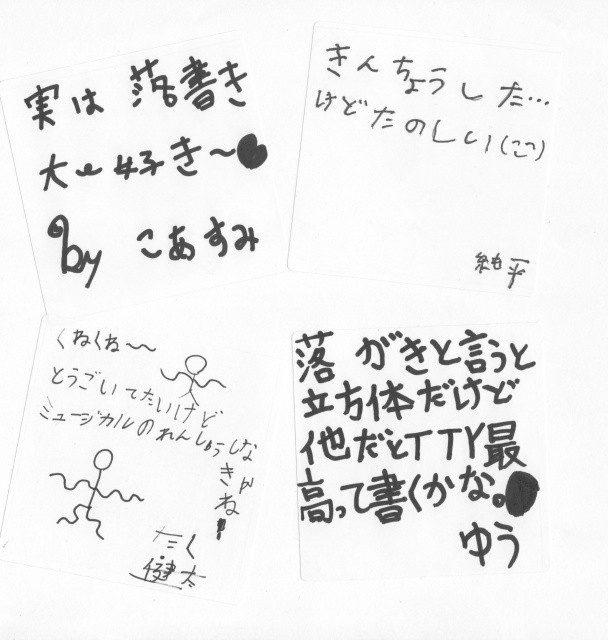 実は 落書き
大好き〜
by こあすみ
きんちょうした…
けどたのしい(こつ)
純平
くねくね〜〜
とうごいてたいけど
ミュージカルのれんしゅうしな
きゃ
ね!
たく
健太
落がきと言うと
立方体だけど
他だとTTY最
高って書くかな。
ゆう